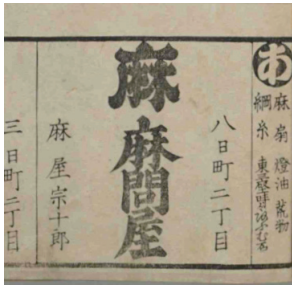 麻 扇 燈油 荒物
綱 糸
八日町二丁目
麻 麻問屋
麻屋宗十郎
三日町二丁目